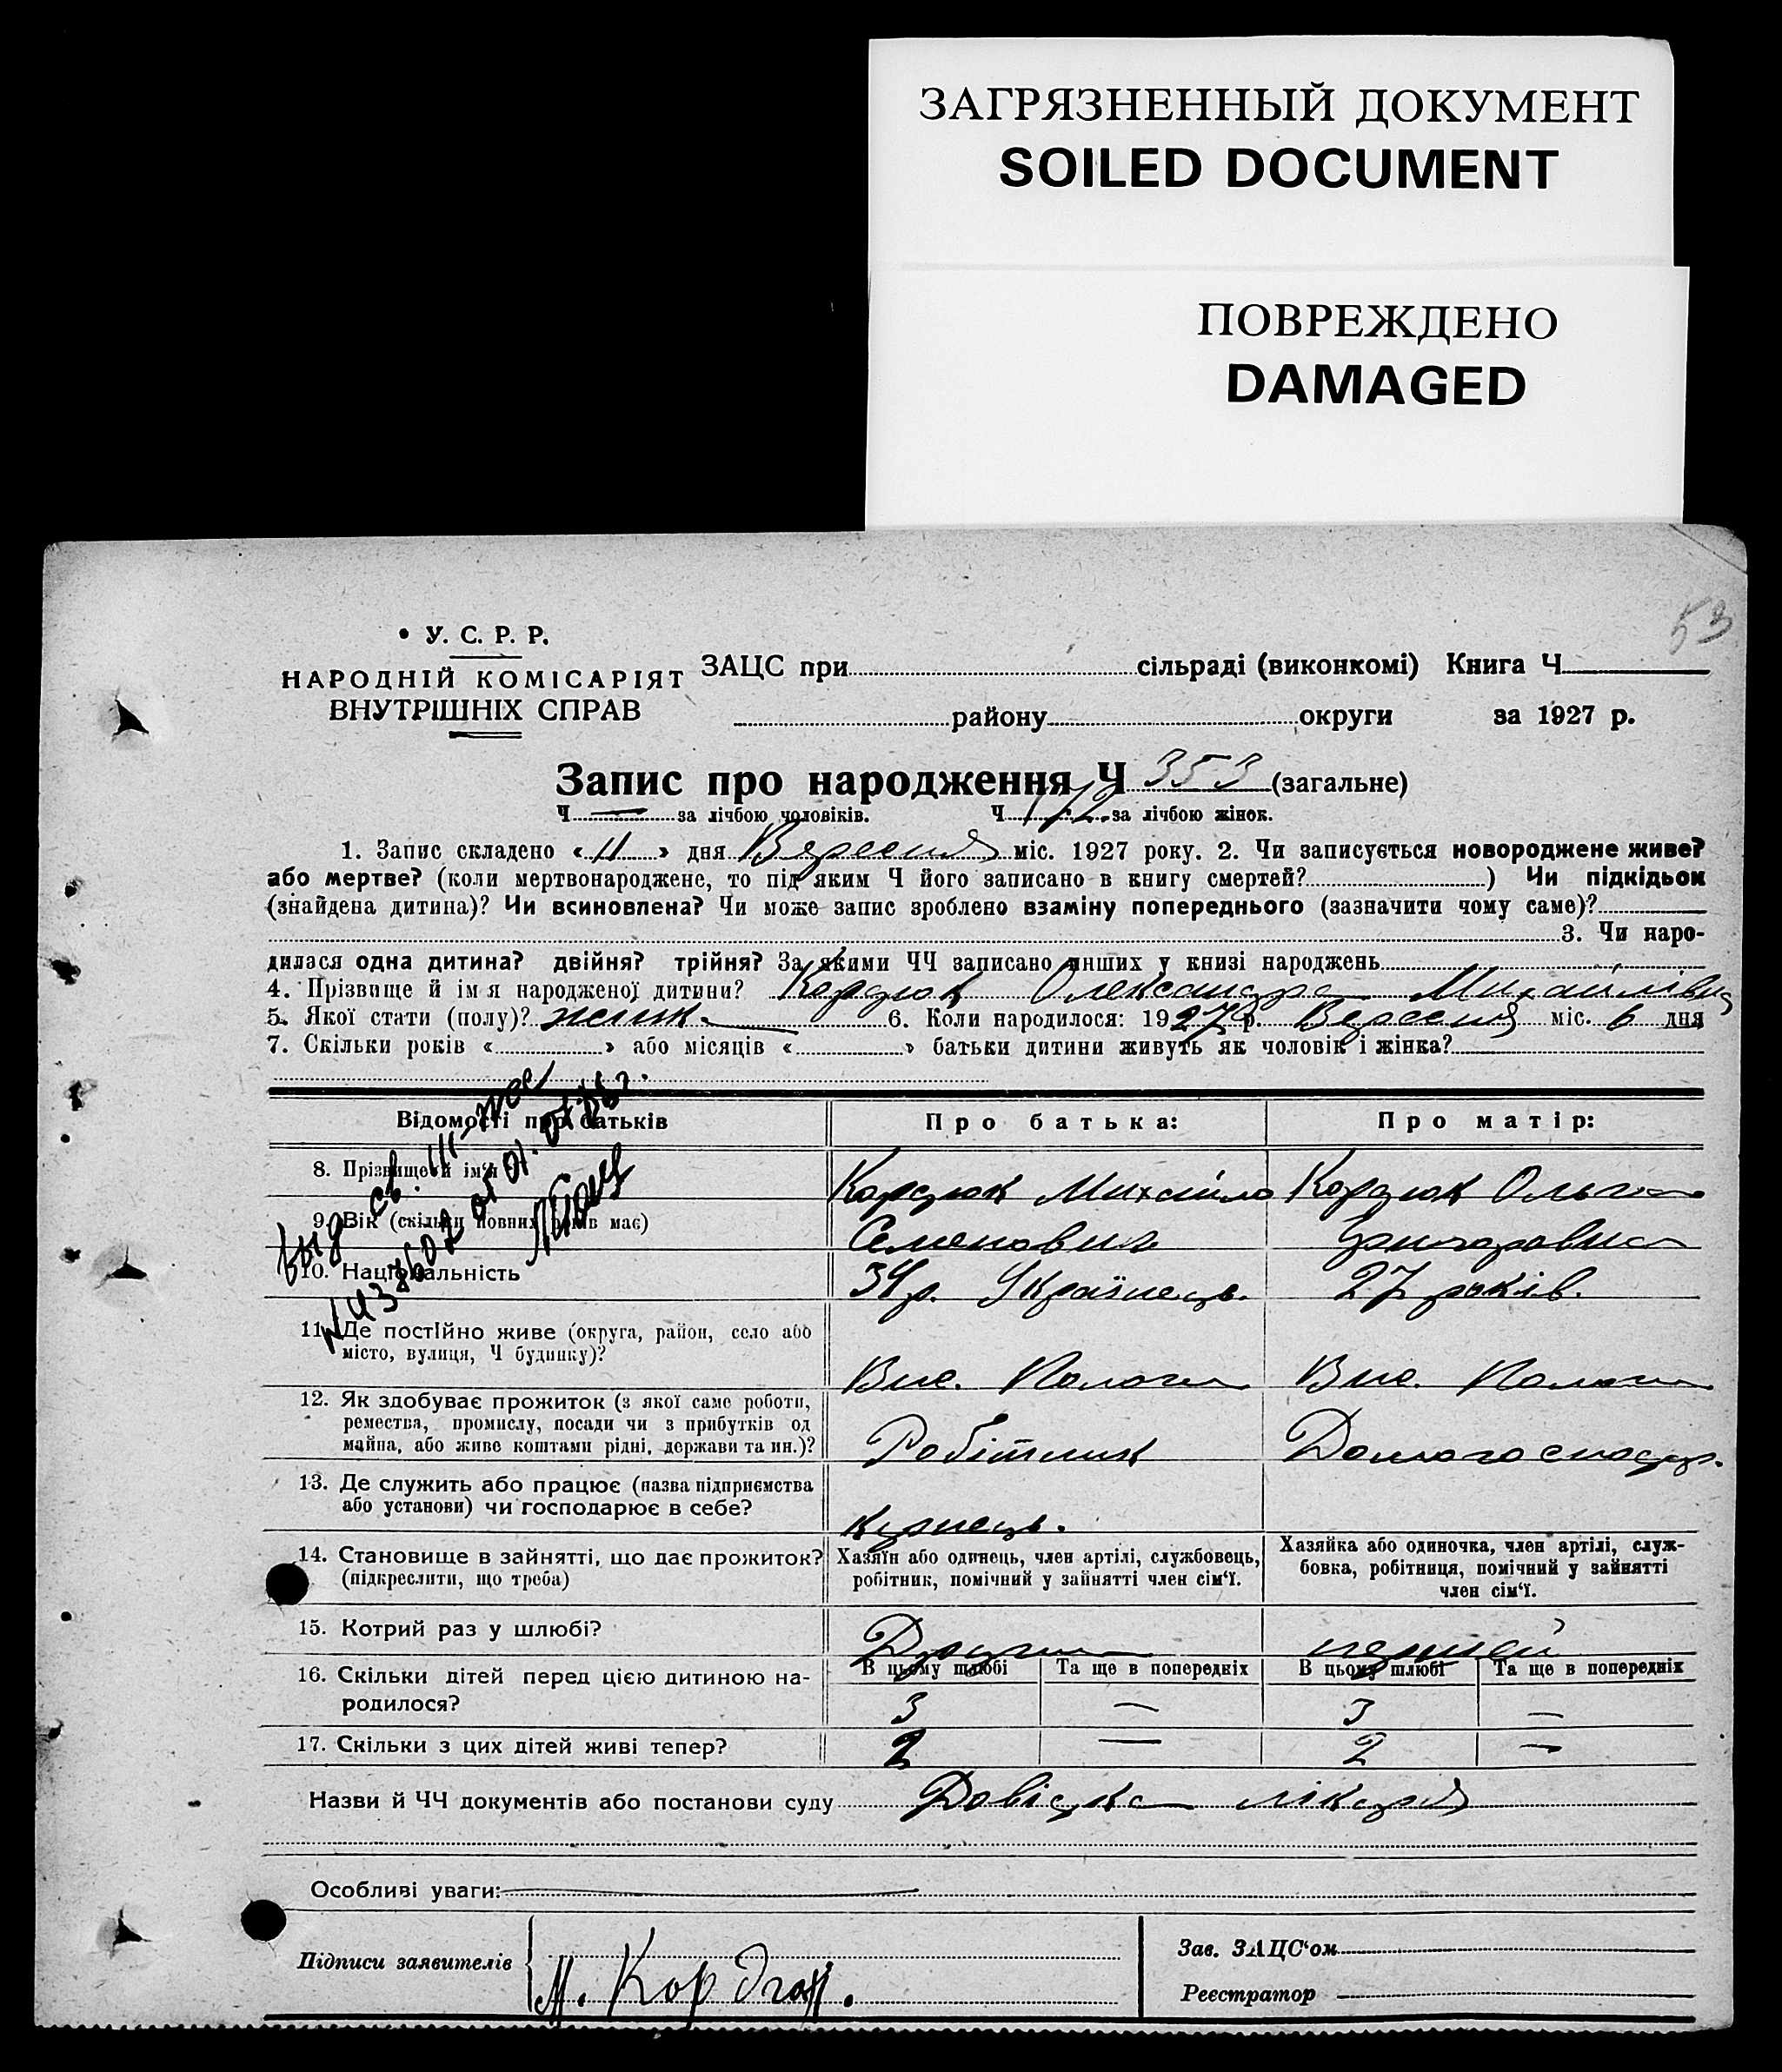 ЗАГРЯЗНЕННЫЙ ДОКУМЕНТ
SOILED DOCUMENT
ПОВРЕЖДЕНО
DAMAGED
53
У. С. Р. Р.
НАРОДНІЙ КОМІСАРІЯТ
ВНУТРІШНІХ СПРАВ
ЗАЦС при сільраді (виконкомі) Книга Ч
району округи за 1927 р.
Запис про народження Ч 353 (загальне)
Ч — за лічбою чоловіків. Ч 172 за лічбою жінок.
1. Запис складено « 11 » дня Вересня міс. 1927 року. 2. Чи записується новороджене живе?
або мертве? (коли мертвонароджене, то під яким Ч його записано в книгу смертей? ) Чи підкідьок
(знайдена дитина)? Чи всиновлена? Чи може запис зроблено взаміну попереднього (зазначити чому саме)?
3. Чи наро-
дилася одна дитина? двійня? трійня? За якими ЧЧ записано инших у книзі народжень
4. Прізвище й ім'я народженої дитини? Кордюк Олександра Михайлівна
5. Якої стати (полу)? жінк. 6. Коли народилося: 1927 р. Вересня міс. 6 дня
7. Скільки років « » або місяців « » батьки дитини живуть як чоловік і жінка?
Відомості про батьків Про батька: Про матір:
8. Прізвище й ім'я Кордюк Михайло Кордюк Ольга
9. Вік (скільки повних років має) Семенович Григоровна
10. Національність 34 р. Українець. 27 років.
11. Де постійно живе (округа, район, село або
місто, вулиця, Ч будинку)? Вис. Пологи Вис. Пологи
12. Як здобуває прожиток (з якої саме роботи,
ремества, промислу, посади чи з прибутків од
майна, або живе коштами рідні, держави та ин.)? Робітник Домогосподар.
13. Де служить або працює (назва підприємства
або установи) чи господарює в себе?
14. Становище в зайнятті, що дає прожиток?
(підкреслити, що треба)
Хазяїн або одинець, член артілі, службовець,
робітник, помічний у зайнятті член сім'ї.
Хазяйка або одиночка, член артілі, служ-
бовка, робітниця, помічний у зайнятті
член сім'ї.
15. Котрий раз у шлюбі?
16. Скільки дітей перед цією дитиною на-
родилося?
В цьому шлюбі Та ще в попередніх В цьому шлюбі Та ще в попередніх
3 — 3 —
17. Скільки з цих дітей живі тепер? 2 — 2 —
Назви й ЧЧ документів або постанови суду Довідка лікаря
Особливі уваги:
Підписи заявителів М. Кордюк.
Зав. ЗАЦС'ом
Реєстратор